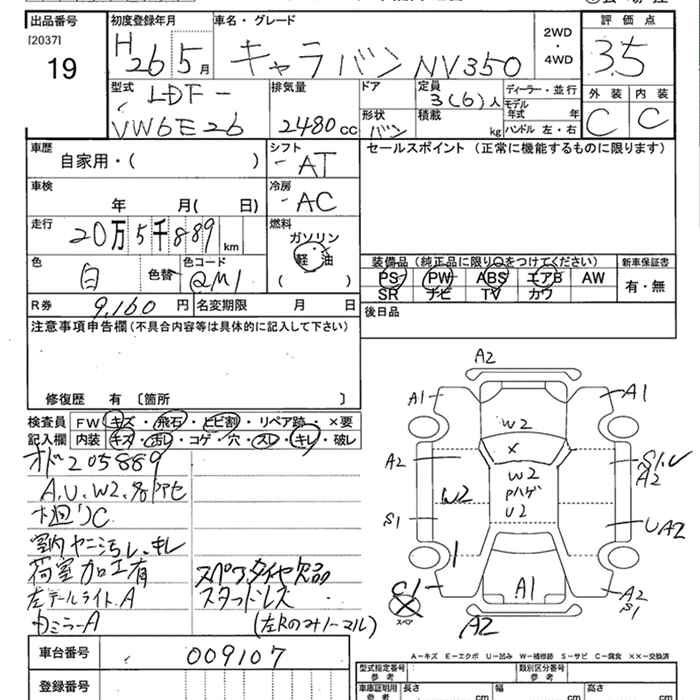 出品番号 初度登録年月 車名・グレード 評価点
[2037] H 26 5月 キャラバン NV350 2WD・4WD 3.5
19
型式 LDF- 排気量 ドア 定員 3(6)人 ディーラー・並行 外装 内装
VW6E26 2480cc 形状 バン 積載 kg モデル年式 年 ハンドル 左・右 C C
車歴 シフト セールスポイント (正常に機能するものに限ります)
自家用・( ) AT
車検 冷房
年 月( 日) AC
走行 燃料
20万5千889km ガソリン
軽油
色 色コード 装備品 (純正品に限り○をつけてください) 新車保証書
白 色替 QM1 ( ) PS PW ABS エアB AW 有・無
SR ナビ TV カワ
R券 9,160円 名変期限 月 日 後日品
注意事項申告欄 (不具合内容等は具体的に記入して下さい)
修復歴 有 〔箇所 〕
検査員 FW キズ・飛石・とビ割・リペア跡・×要
記入欄 内装 キズ・汚レ・コゲ・穴・スレ・キレ・破レ
オド205889
A.U.W2.
C
室内ヤニ汚レ、キレ
荷室加工有 スペアタイヤ欠品
左テールライトA スタッドレス
ミラーA (左Rのみノーマル)
車台番号 009107
登録番号
A2
A1 A1
W2
×
A2 W2 W2 S1.U
Pハゲ A2
U2
S1 UA2
C1 A1 A2
スペア S1
A2
A-キズ E-エクボ U-凹み W-補修跡 S-サビ C-腐食 ××-交換済
型式指定番号 類別区分番号
参考 参考
車庫証明用 長さ 幅 高さ
参考 cm cm cm